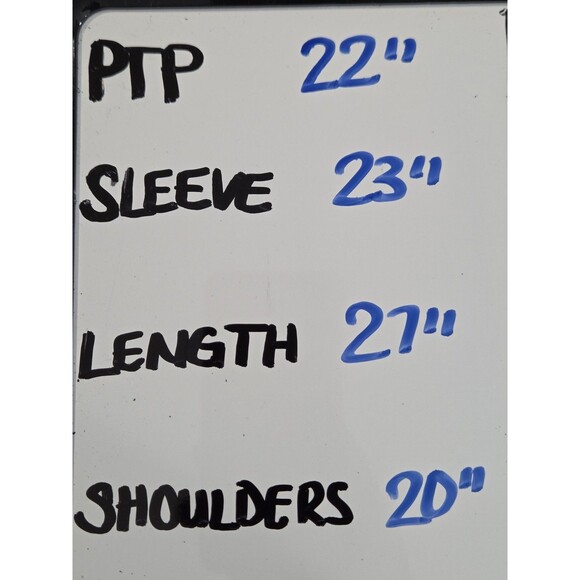 PTP 22"
SLEEVE 23"
LENGTH 27"
SHOULDERS 20"